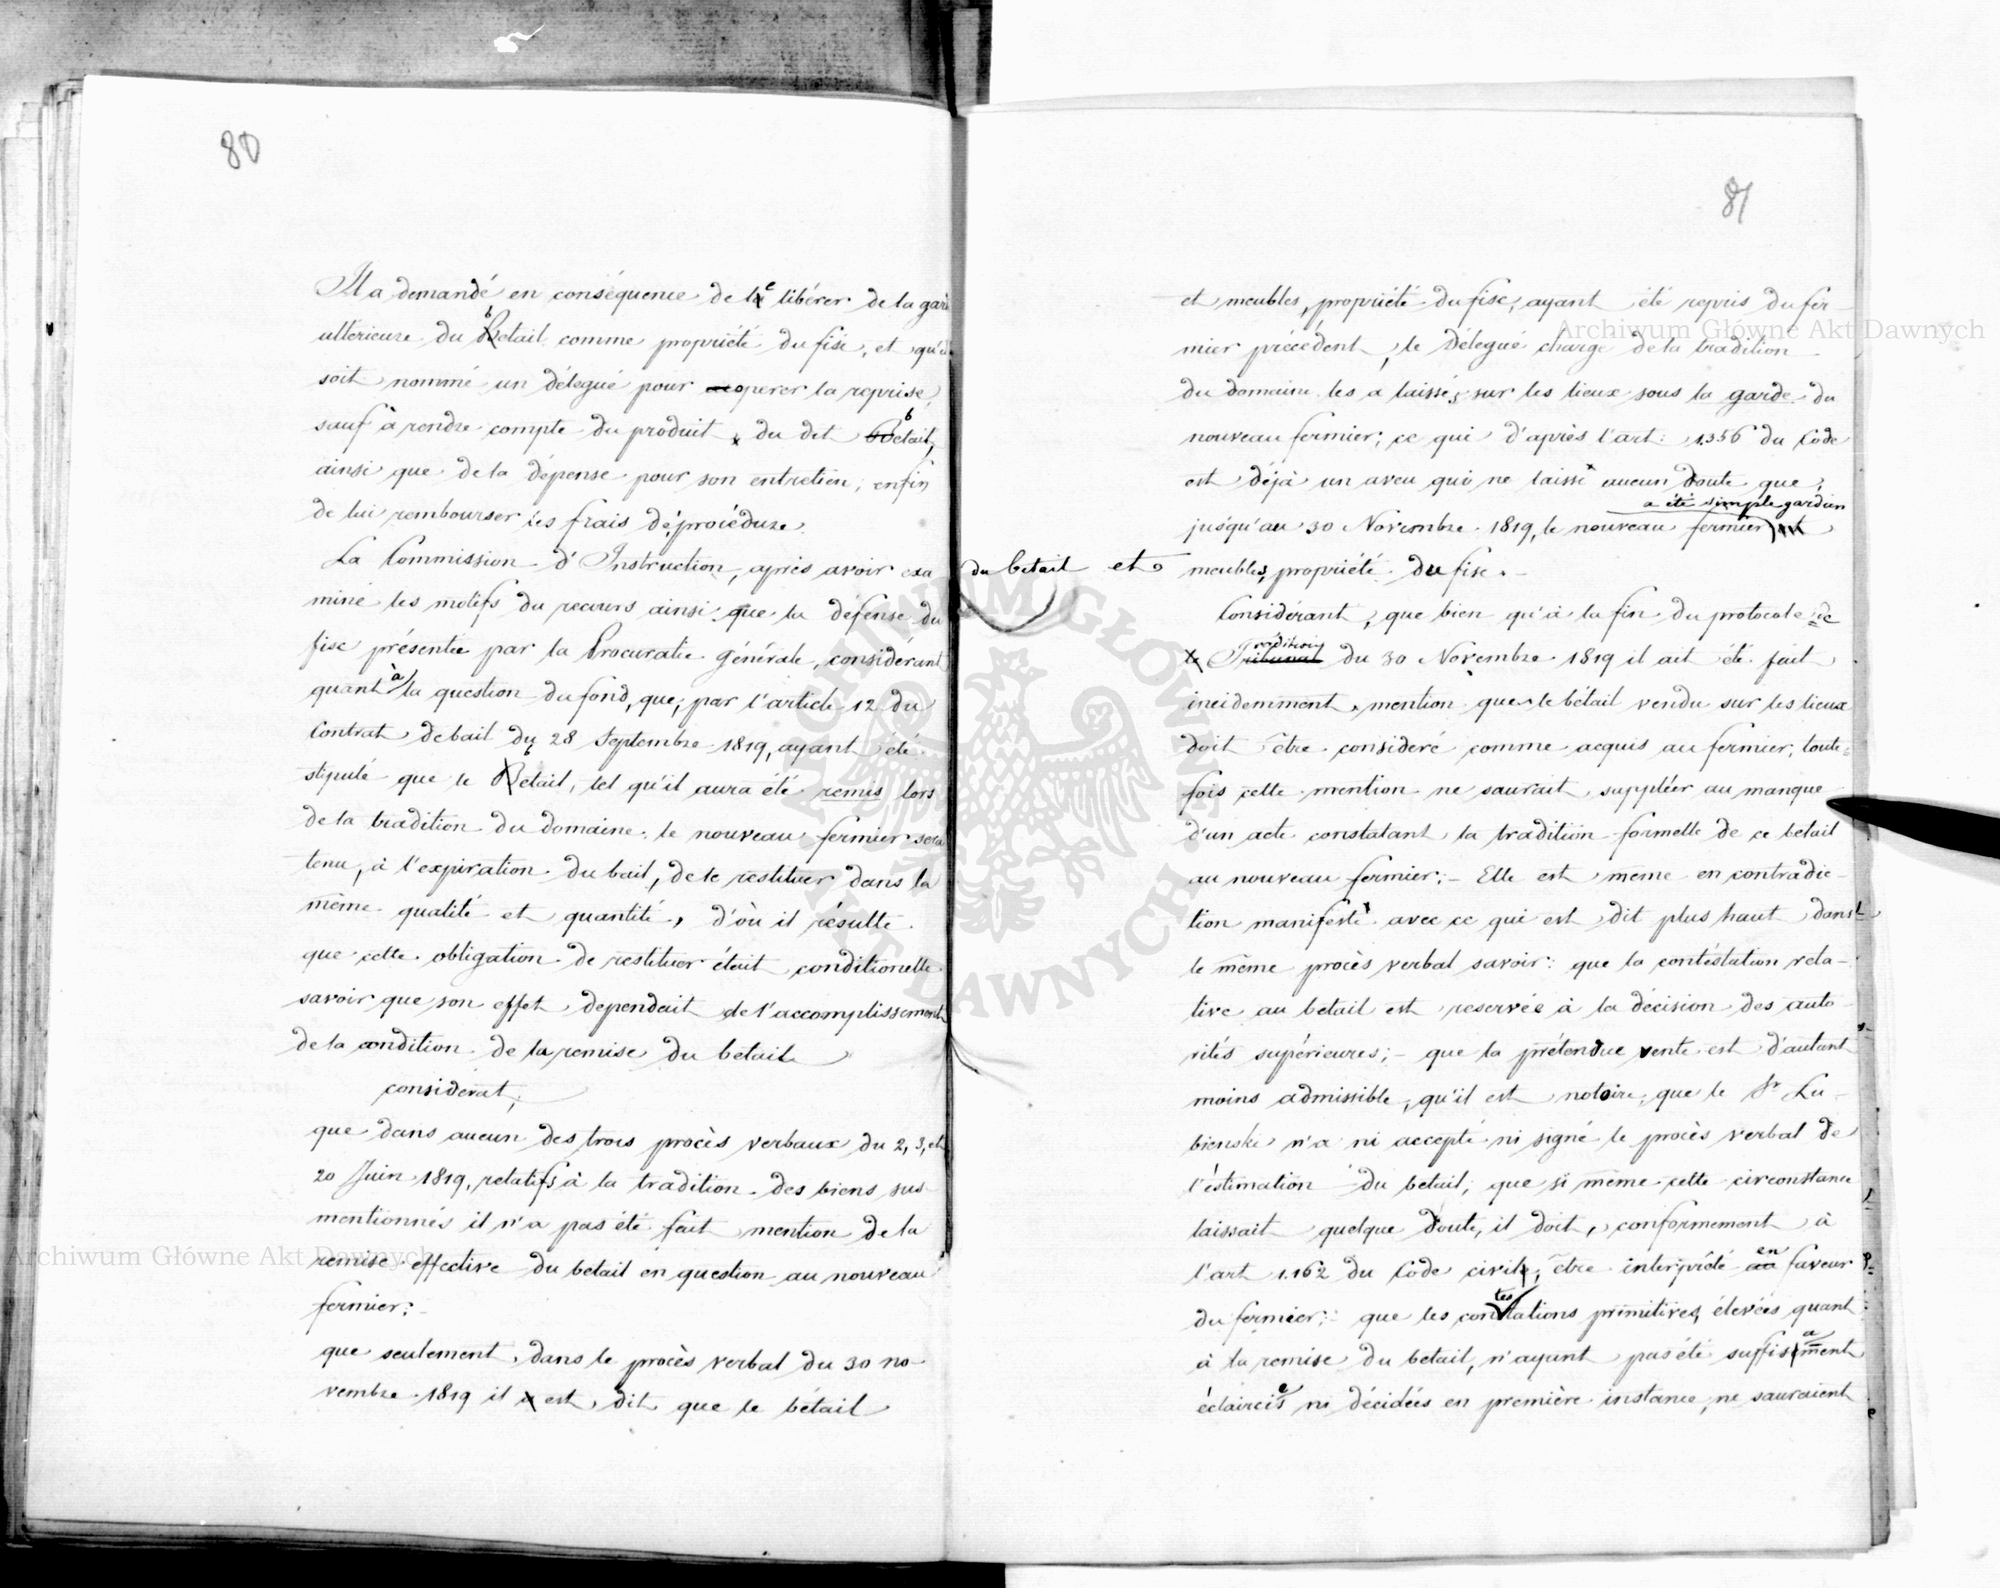 80
Il a demandé en conséquence de le libérer de la gar
ultérieure du betail comme propriété du fisc, et qu'il
soit nommé un délegué pour operer la reprise,
sauf à rendre compte du produit du dit betail,
ainsi que de la dépense pour son entretien, enfin
de lui rembourser les frais de procédure.
La Commission d'Instruction, après avoir exa
miné les motifs du recours ainsi que la défense du
fisc présentée par la Procuratie générale, considérant
quant à la question du fond, que, par l'article 12 du
Contrat de bail du 28 Septembre 1819, ayant été
stipulé que le betail, tel qu'il aura été remis lors
de la tradition du domaine, le nouveau fermier sera
tenu, à l'expiration du bail, de le restituer dans la
même qualité et quantité, d'où il résulte
que cette obligation de restituer était conditionelle
savoir que son effet dependait de l'accomplissement
de la condition de la remise du betail
considerat,
que dans aucun des trois procès verbaux du 2, 3, et
20 Juin 1819, relatifs à la tradition des biens sus
mentionnés il n'a pas été fait mention de la
remise effective du betail en question au nouveau
fermier;
que seulement dans le procès verbal du 30 no-
vembre 1819 il est dit que le bétail
81
et meubles, propriété du fisc, ayant été repris du fer-
mier précédent, le Délegué chargé de la tradition
du domaine les a laissés sur les lieux sous la garde du
nouveau fermier; ce qui d'après l'art: 1356 du Code
est déjà un aveu qui ne laisse aucun doute que,
a été simple gardien
jusqu'au 30 Novembre 1819, le nouveau fermier
du betail et meubles, propriété du fisc.-
Considérant, que bien qu'à la fin du protocole de
Tradition
le Tribunal du 30 Novembre 1819 il ait été fait
incidemment mention que le bétail vendu sur les lieux
doit être consideré comme acquis au fermier, toute=
fois cette mention ne saurait suppléer au manque
d'un acte constatant la tradition formelle de ce betail
au nouveau fermier;- Elle est même en contradic-
tion manifeste avec ce qui est dit plus haut dans
le même procès verbal savoir: que la contestation rela-
tive au betail est reservée à la décision des auto-
rités supérieures;- que la prétendue vente est d'autant
moins admissible, qu'il est notoire, que le Sr Lu-
bienski n'a ni accepté ni signé le procès verbal de
l'éstimation du betail; que si même cette circonstance
laissait quelque doute, il doit, conformement à
l'art 1.162 du Code civil, être interprété en faveur
du fermier; que les contestations primitives, élevées quant
à la remise du betail, n'ayant pas été suffisament
éclaircies ni décidées en première instance, ne sauraient
Archiwum Główne Akt Dawnych
Archiwum Główne Akt Dawnych
ARCHIWUM GŁÓWNE AKT DAWNYCH